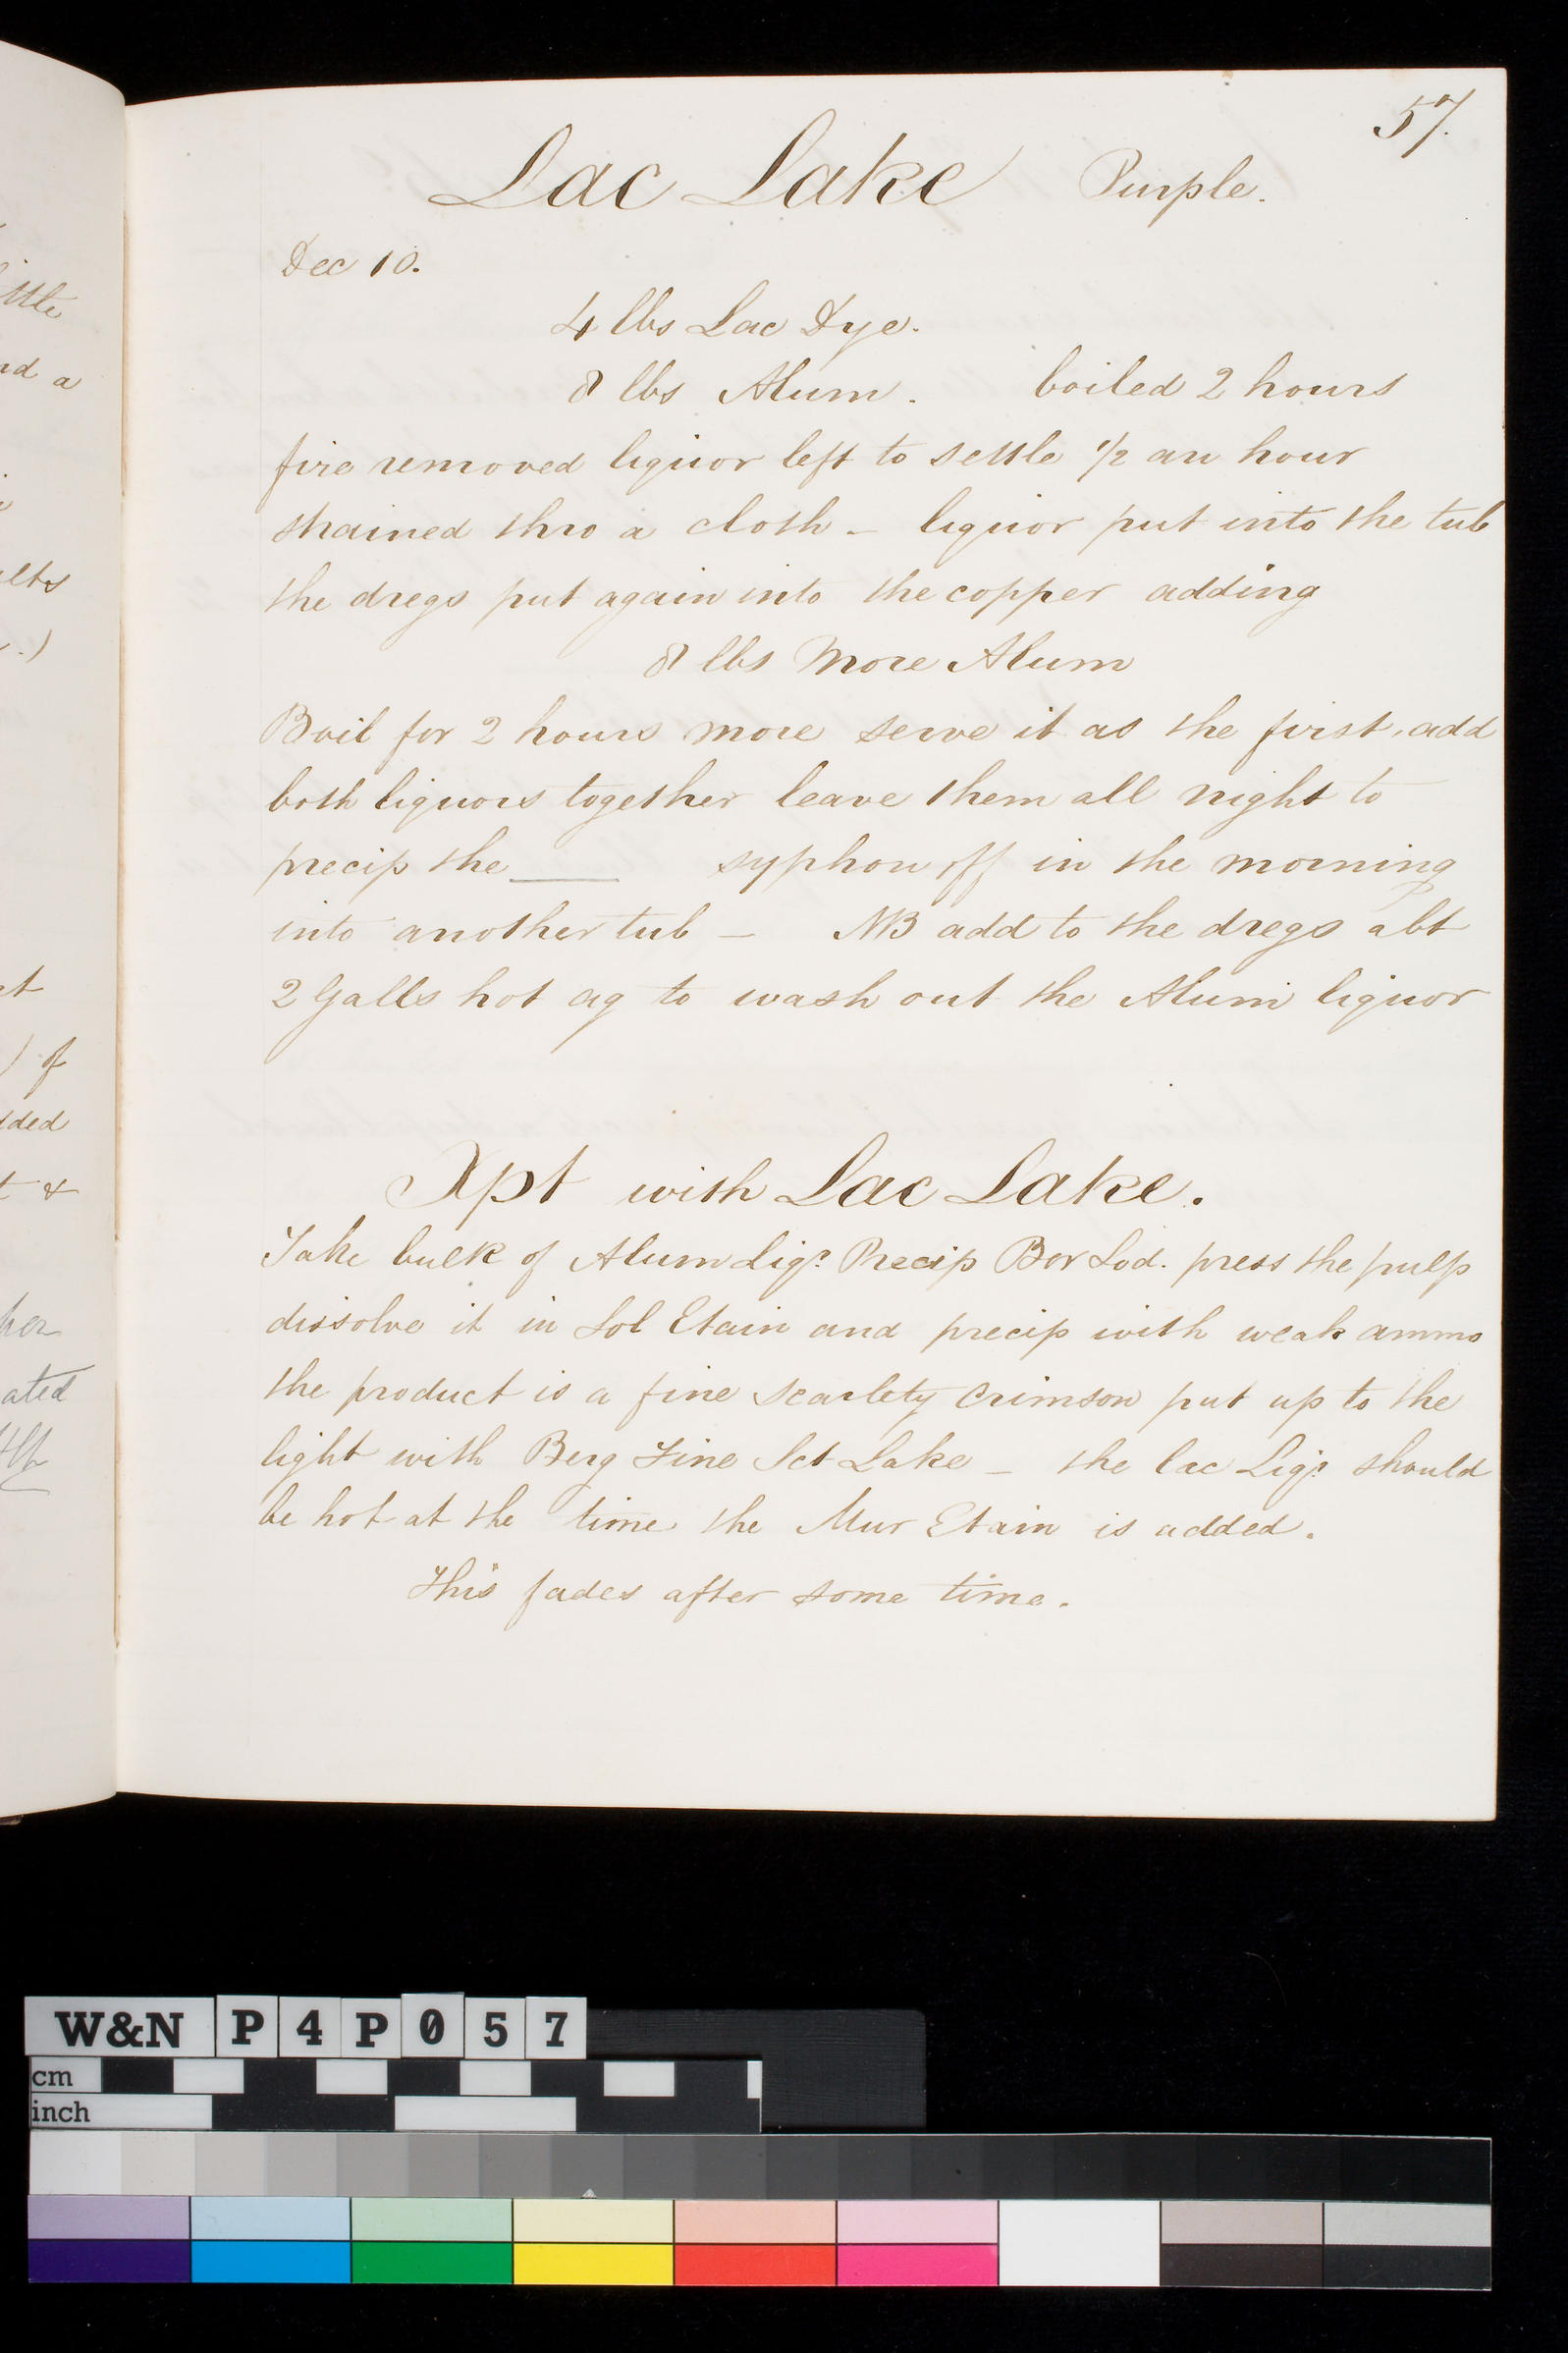 57.
Lac Lake Purple.
Dec 10.
4 lbs Lac Dye.
8 lbs Alum. boiled 2 hours
fire removed liquor left to settle 1/2 an hour
strained thro a cloth - liquor put into the tub
the dregs put again into the copper adding
8 lbs More Alum
Boil for 2 hours more serve it as the first, add
both liquors together leave them all night to
precip the ____ syphon off in the morning
into another tub - NB add to the dregs abt
2 Galls hot aq to wash out the Alum liquor
Xpt with Lac Lake.
Take bulk of Alum Liqr. Precip Bor Sod. press the pulp
dissolve it in Sol Etain and precip with weak ammo
the product is a fine scarlety Crimson put up to the
light with Berg Fine Sct Lake - the lac Liqr. should
be hot at the time the Mur Etain is added.
This fades after some time.
ttle
nd a
elts
.)
ct
) of
dded
t &
her
ated
W&N P4P057
cm
inch